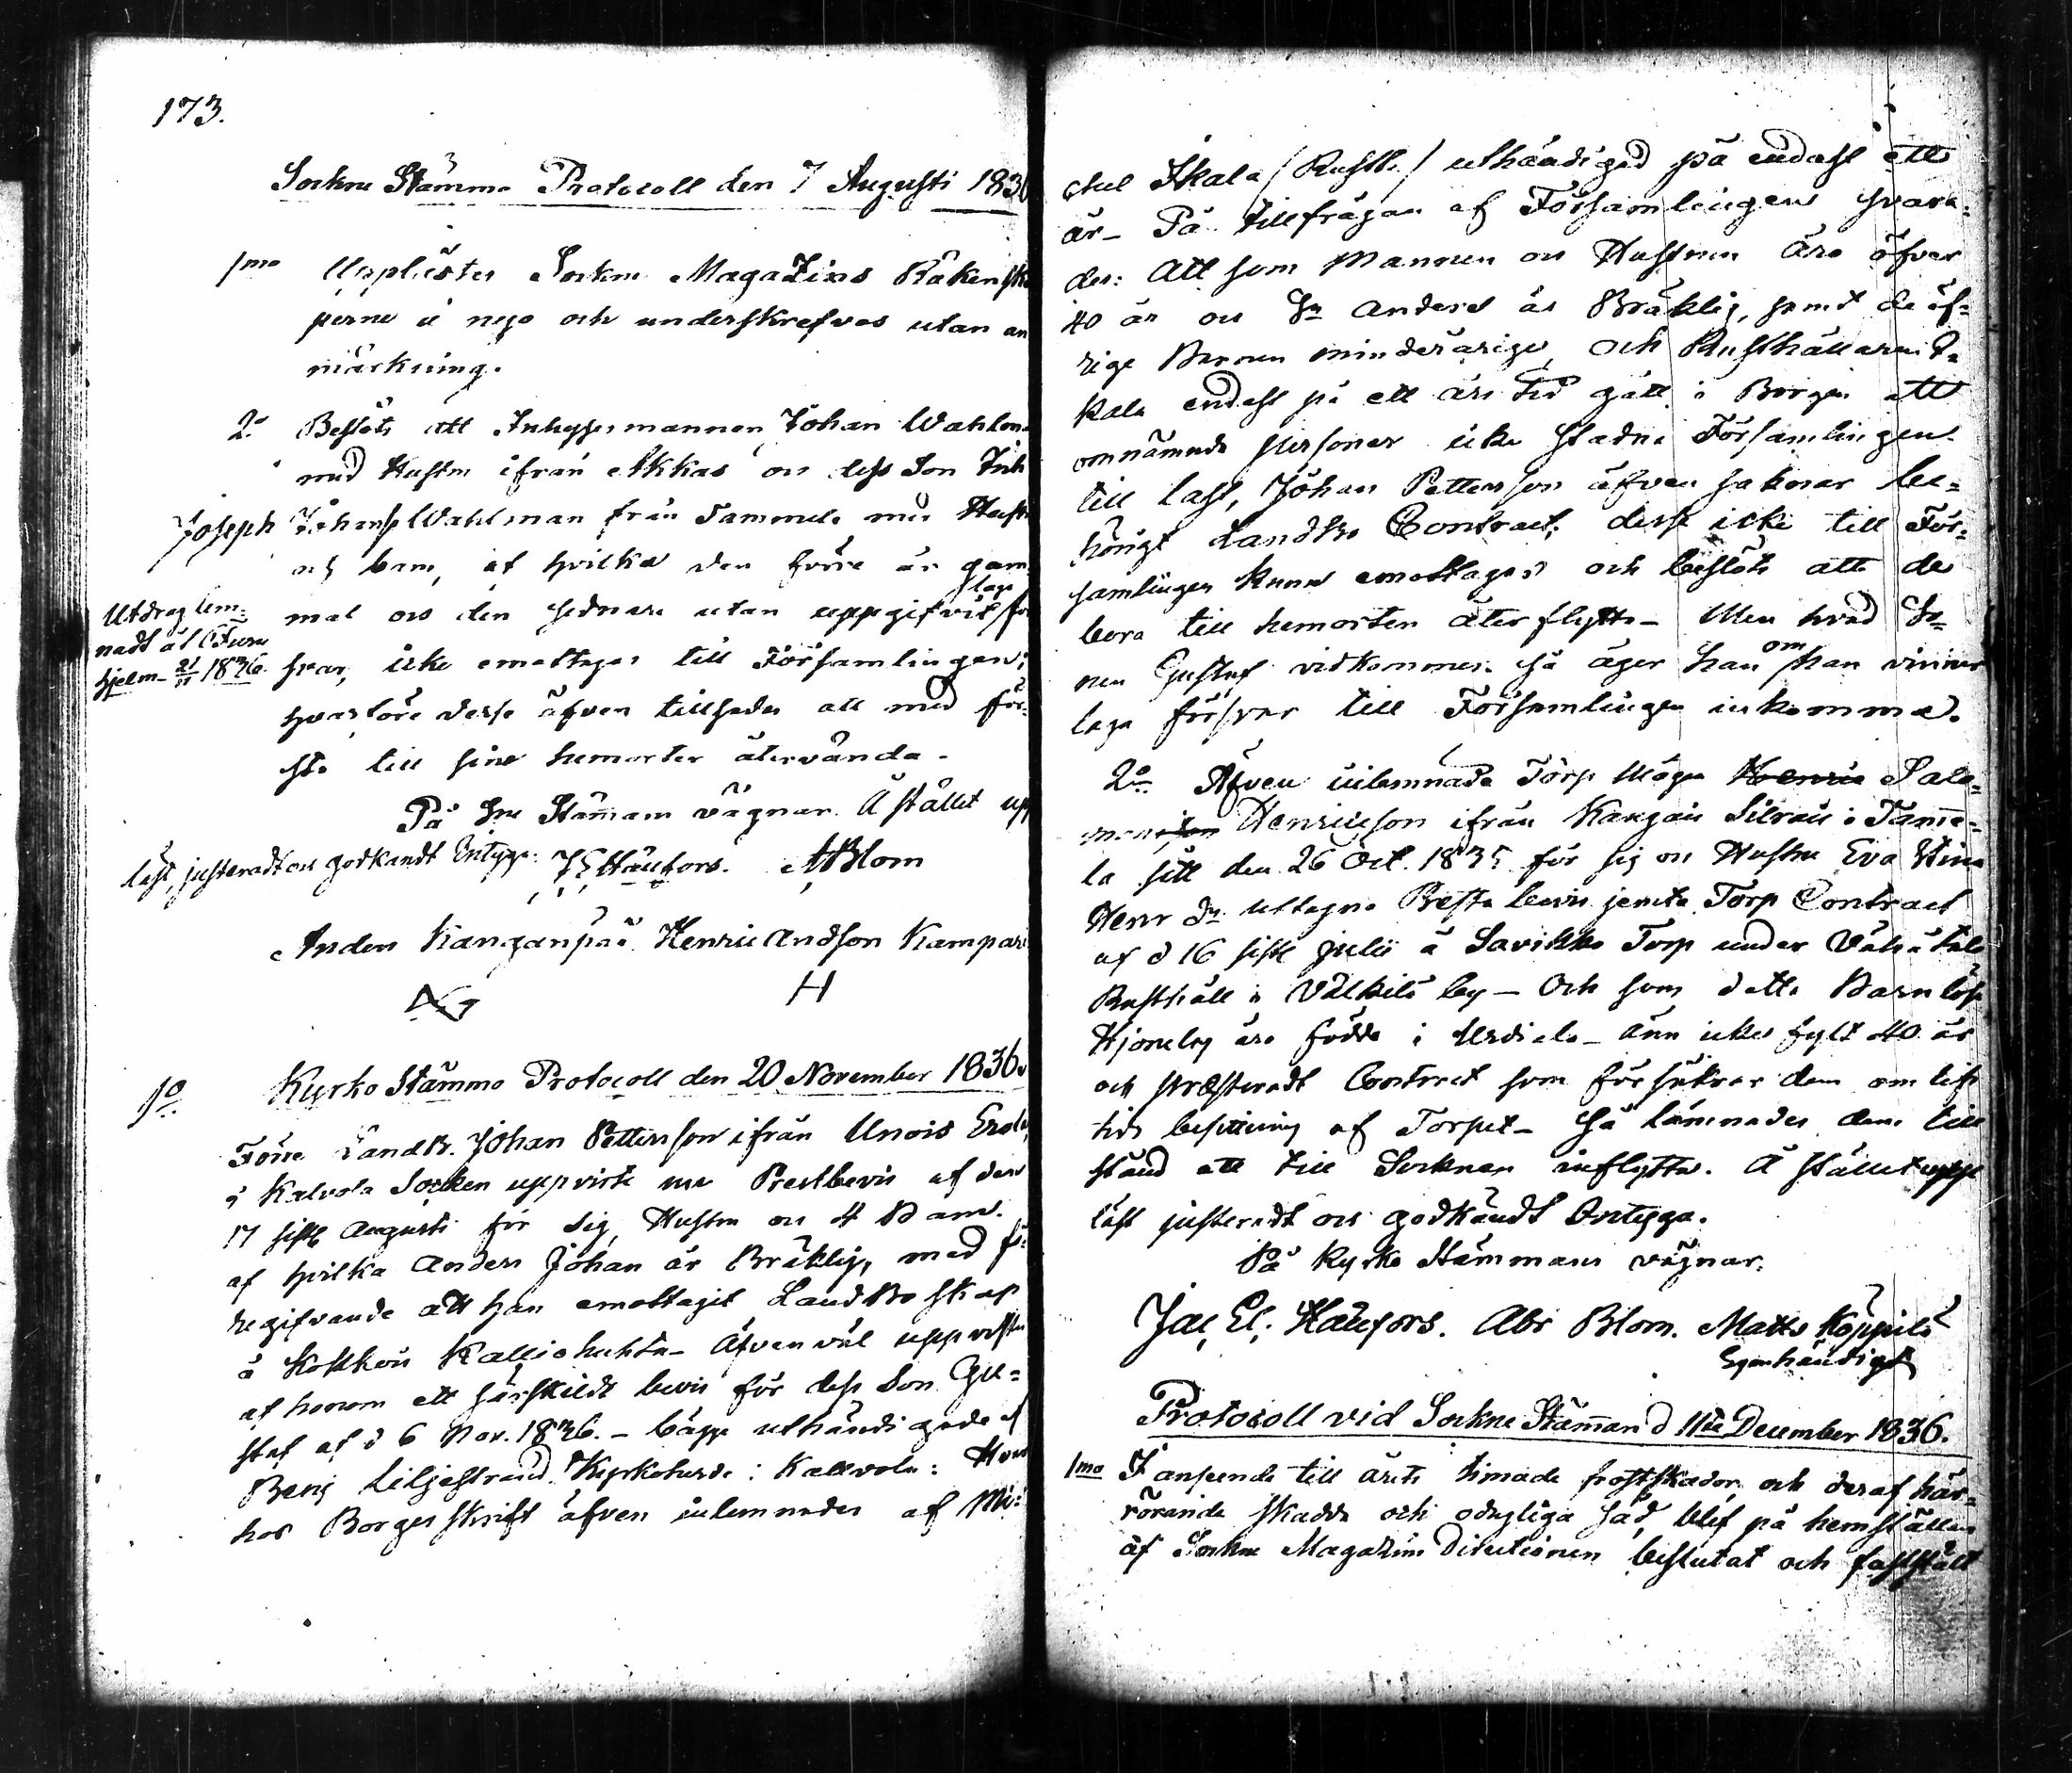 173.
Sockne Stämmo Protocoll den 7 Augusti 1836
1mo Upplästes Sockne Magazins Räkenska
perne å nyo och underskrefvos utan an
märkning.
2o Beslöts att Inhysesmannen Johan Wahlman
med Hustru ifrån Akkas oc dess Son Inh
Joseph Johanss Wahlman från Tammela med Hustru
och barn, af hvilka den förre är gam
mal oc den sednare utan uppgifvit laga för
Utdrag lem=
nadt åt C Furu
hjelm 21/11 1836.
svar, icke emottages till Församlingen;
hvarföre desse äfven tillsades att med för=
sta till sine hemorter återvända.
På Sne Stämmans vägnar. Å stället upp
läst, justeradt oc godkändt Intyga. J E Haufors. A Blom
Anders Kanganpää Henric Andson Kampari
H
Kyrko Stämmo Protocoll den 20 November 1836.
1o. Förre Landb. Johan Pettersson ifrån Unois Erola
i Kalvola Socken uppviste med Prestbevis af den
17 sistl Augusti för sig, Hustru oc 4 Barn.
af hvilka Anders Johan är Bräklig, med fö=
regifvande att han emottagit Landboskap
å Koskois Kalliohuhta - Äfvenväl uppviste
af honom ett särskildt bevis för dess Son Gu=
staf af d 6 Nov. 1836. - bägge uthändigade af
Benj Liljestrand Kyrkoherde i Kallvola: Hvar
hos Borgesskrift äfven inlemnades af Mi=
chel Skala /Rustth./ uthändigad på endast ett
år - På tillfrågan af Församlingen svara=
des: Att som Mannen oc Hustrun äro öfver
40 år oc Sn Anders är Bräklig, samt de öf=
rige Barnen minderårige, och Rusthållaren S
kala endast på ett års tid gått i Borgen att
omnämnde personer icke stadne Församlingen
till last, Johan Pettersson äfven saknar be=
hörigt Landbo Contract; desse icke till För=
samlingen kunna emottagas och beslöts att de
bora till hemorten återflytta - Men hvad So=
nen Gustaf vidkommer så äger han om han vinner
laga försvar till Församlingen inkomma.
2o. Äfven inlemnade Torp Mågen Henric Salo=
mon Henricsson ifrån Kangais Silvais i Tamme=
la sitt den 26 Oct. 1835 för sig oc Hustru Eva Stina
Henr dr uttagne Prestabevis jemte Torp Contract
af d 16 sistl Julii å Savikko Torp under Vähätalo
Rusthåll i Välkilä by - Och som dette Barnlösa
Hjonelag äro födde i Urdiala - ännu icke fylt 40 år
och presteradt Contract som försäkrar dem om lifs
tids besittning af Torpet - Så lämnades dem till
stånd att till Socknen inflytta. Å stället upp
läst justeradt oc godkändt Intyga.
På Kyrko Stämmans vägnar.
Jac. El. Haufors. Abr Blom. Matts Köppilä
Egenhändigt
Protocoll vid Sockne Stämman d 11te December 1836.
1mo I anseende till årets timade frostskador och deraf här=
rörande skadde och odugliga säd, blef på hemställan
af Sockne Magazins Directionen beslutat och fastställt